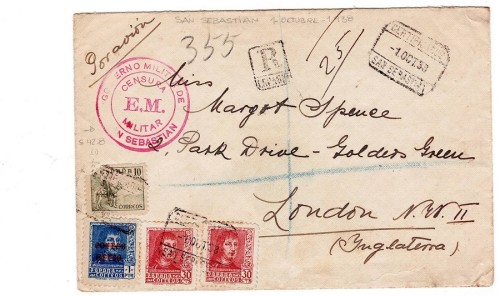 SAN SEBASTIAN 1 OCTUBRE - 1938
Por avión
355
R
CERTIFICADO
-1 OCT 38
SAN SEBASTIAN
GOBIERNO MILITAR DE
CENSURA
E.M.
MILITAR
SAN SEBASTIAN
Miss
Margot Spence
2, Park Drive - Golders Green
London N.W. 11
(Inglaterra)
10
CORREOS
1 OCT 38
30
30
ESPAÑA
CORREOS
ESPAÑA
CORREOS